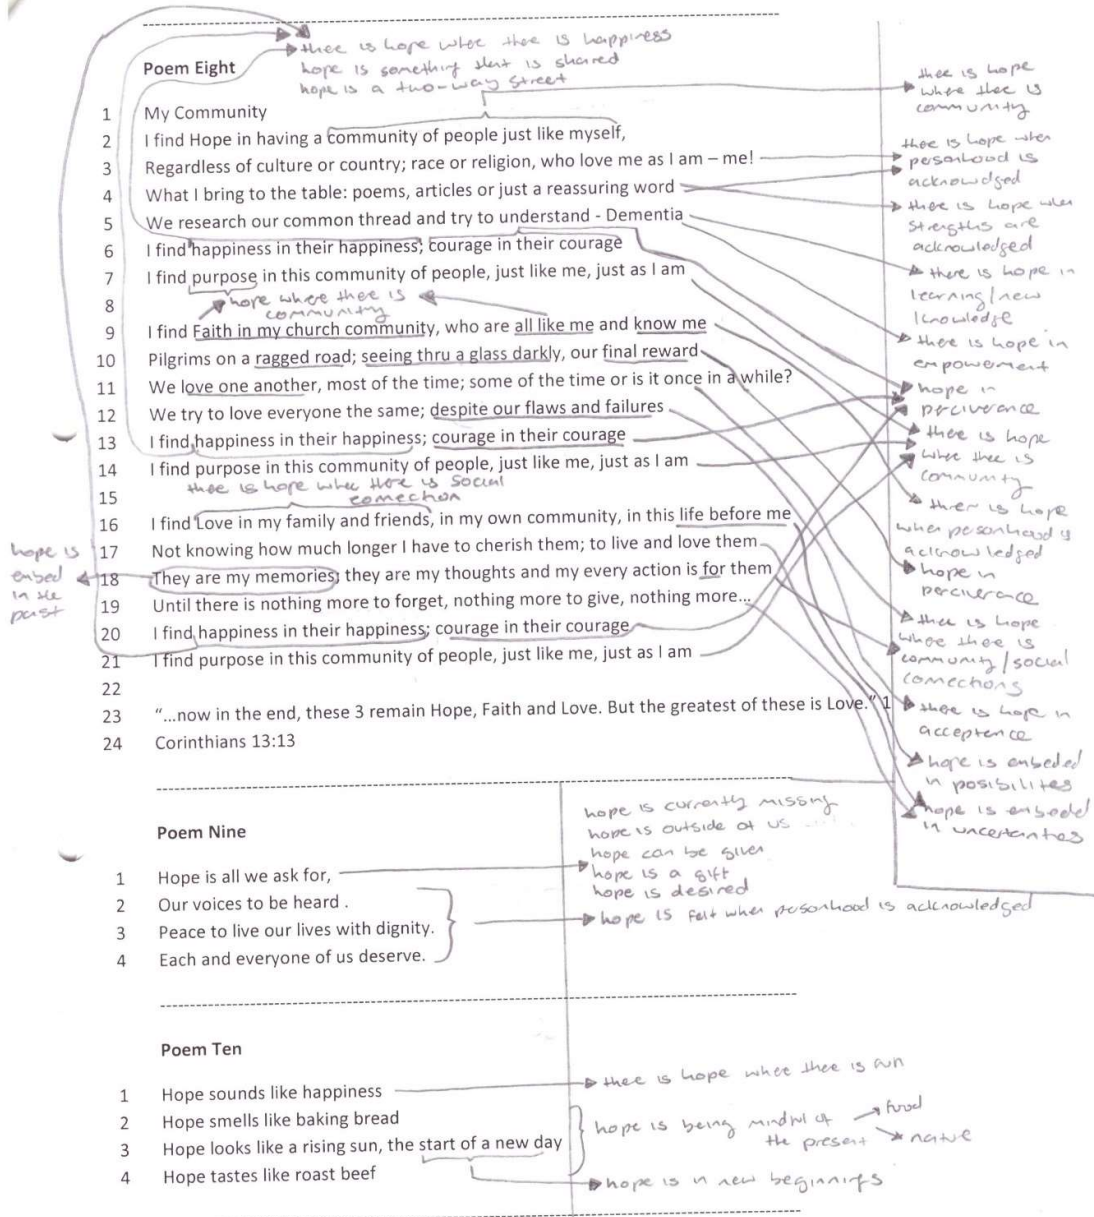 thee is hope where thee is happiness
hope is something that is shared
hope is a two-way street
Poem Eight
1 My Community
2 I find Hope in having a community of people just like myself,
3 Regardless of culture or country; race or religion, who love me as I am – me!
4 What I bring to the table: poems, articles or just a reassuring word
5 We research our common thread and try to understand - Dementia
6 I find happiness in their happiness; courage in their courage
7 I find purpose in this community of people, just like me, just as I am
8 hope where there is
community
9 I find Faith in my church community, who are all like me and know me
10 Pilgrims on a ragged road; seeing thru a glass darkly, our final reward
11 We love one another, most of the time; some of the time or is it once in a while?
12 We try to love everyone the same; despite our flaws and failures
13 I find happiness in their happiness; courage in their courage
14 I find purpose in this community of people, just like me, just as I am
thee is hope when there is social
15 connection
16 I find Love in my family and friends, in my own community, in this life before me
17 Not knowing how much longer I have to cherish them; to live and love them
18 They are my memories; they are my thoughts and my every action is for them
19 Until there is nothing more to forget, nothing more to give, nothing more...
20 I find happiness in their happiness; courage in their courage
21 I find purpose in this community of people, just like me, just as I am
22
23 “...now in the end, these 3 remain Hope, Faith and Love. But the greatest of these is Love.” 1
24 Corinthians 13:13
hope is
embed
in the
past
thee is hope
where thee is
community
thee is hope when
personhood is
acknowledged
there is hope when
strengths are
acknowledged
there is hope in
learning/new
knowledge
there is hope in
empowerment
hope in
perciverance
there is hope
where thee is
community
there is hope
when personhood is
acknowledged
hope in
perciverance
thee is hope
where thee is
community/social
connections
there is hope in
acceptence
hope is embeded
in posibilites
hope is embeded
in uncertainties
Poem Nine
1 Hope is all we ask for,
2 Our voices to be heard .
3 Peace to live our lives with dignity.
4 Each and everyone of us deserve.
hope is currently missing
hope is outside of us .....
hope can be given
hope is a gift
hope is desired
hope is felt when personhood is acknowledged
Poem Ten
1 Hope sounds like happiness
2 Hope smells like baking bread
3 Hope looks like a rising sun, the start of a new day
4 Hope tastes like roast beef
thee is hope where thee is
hope is being mindful of food
the present nature
hope is in new beginnings